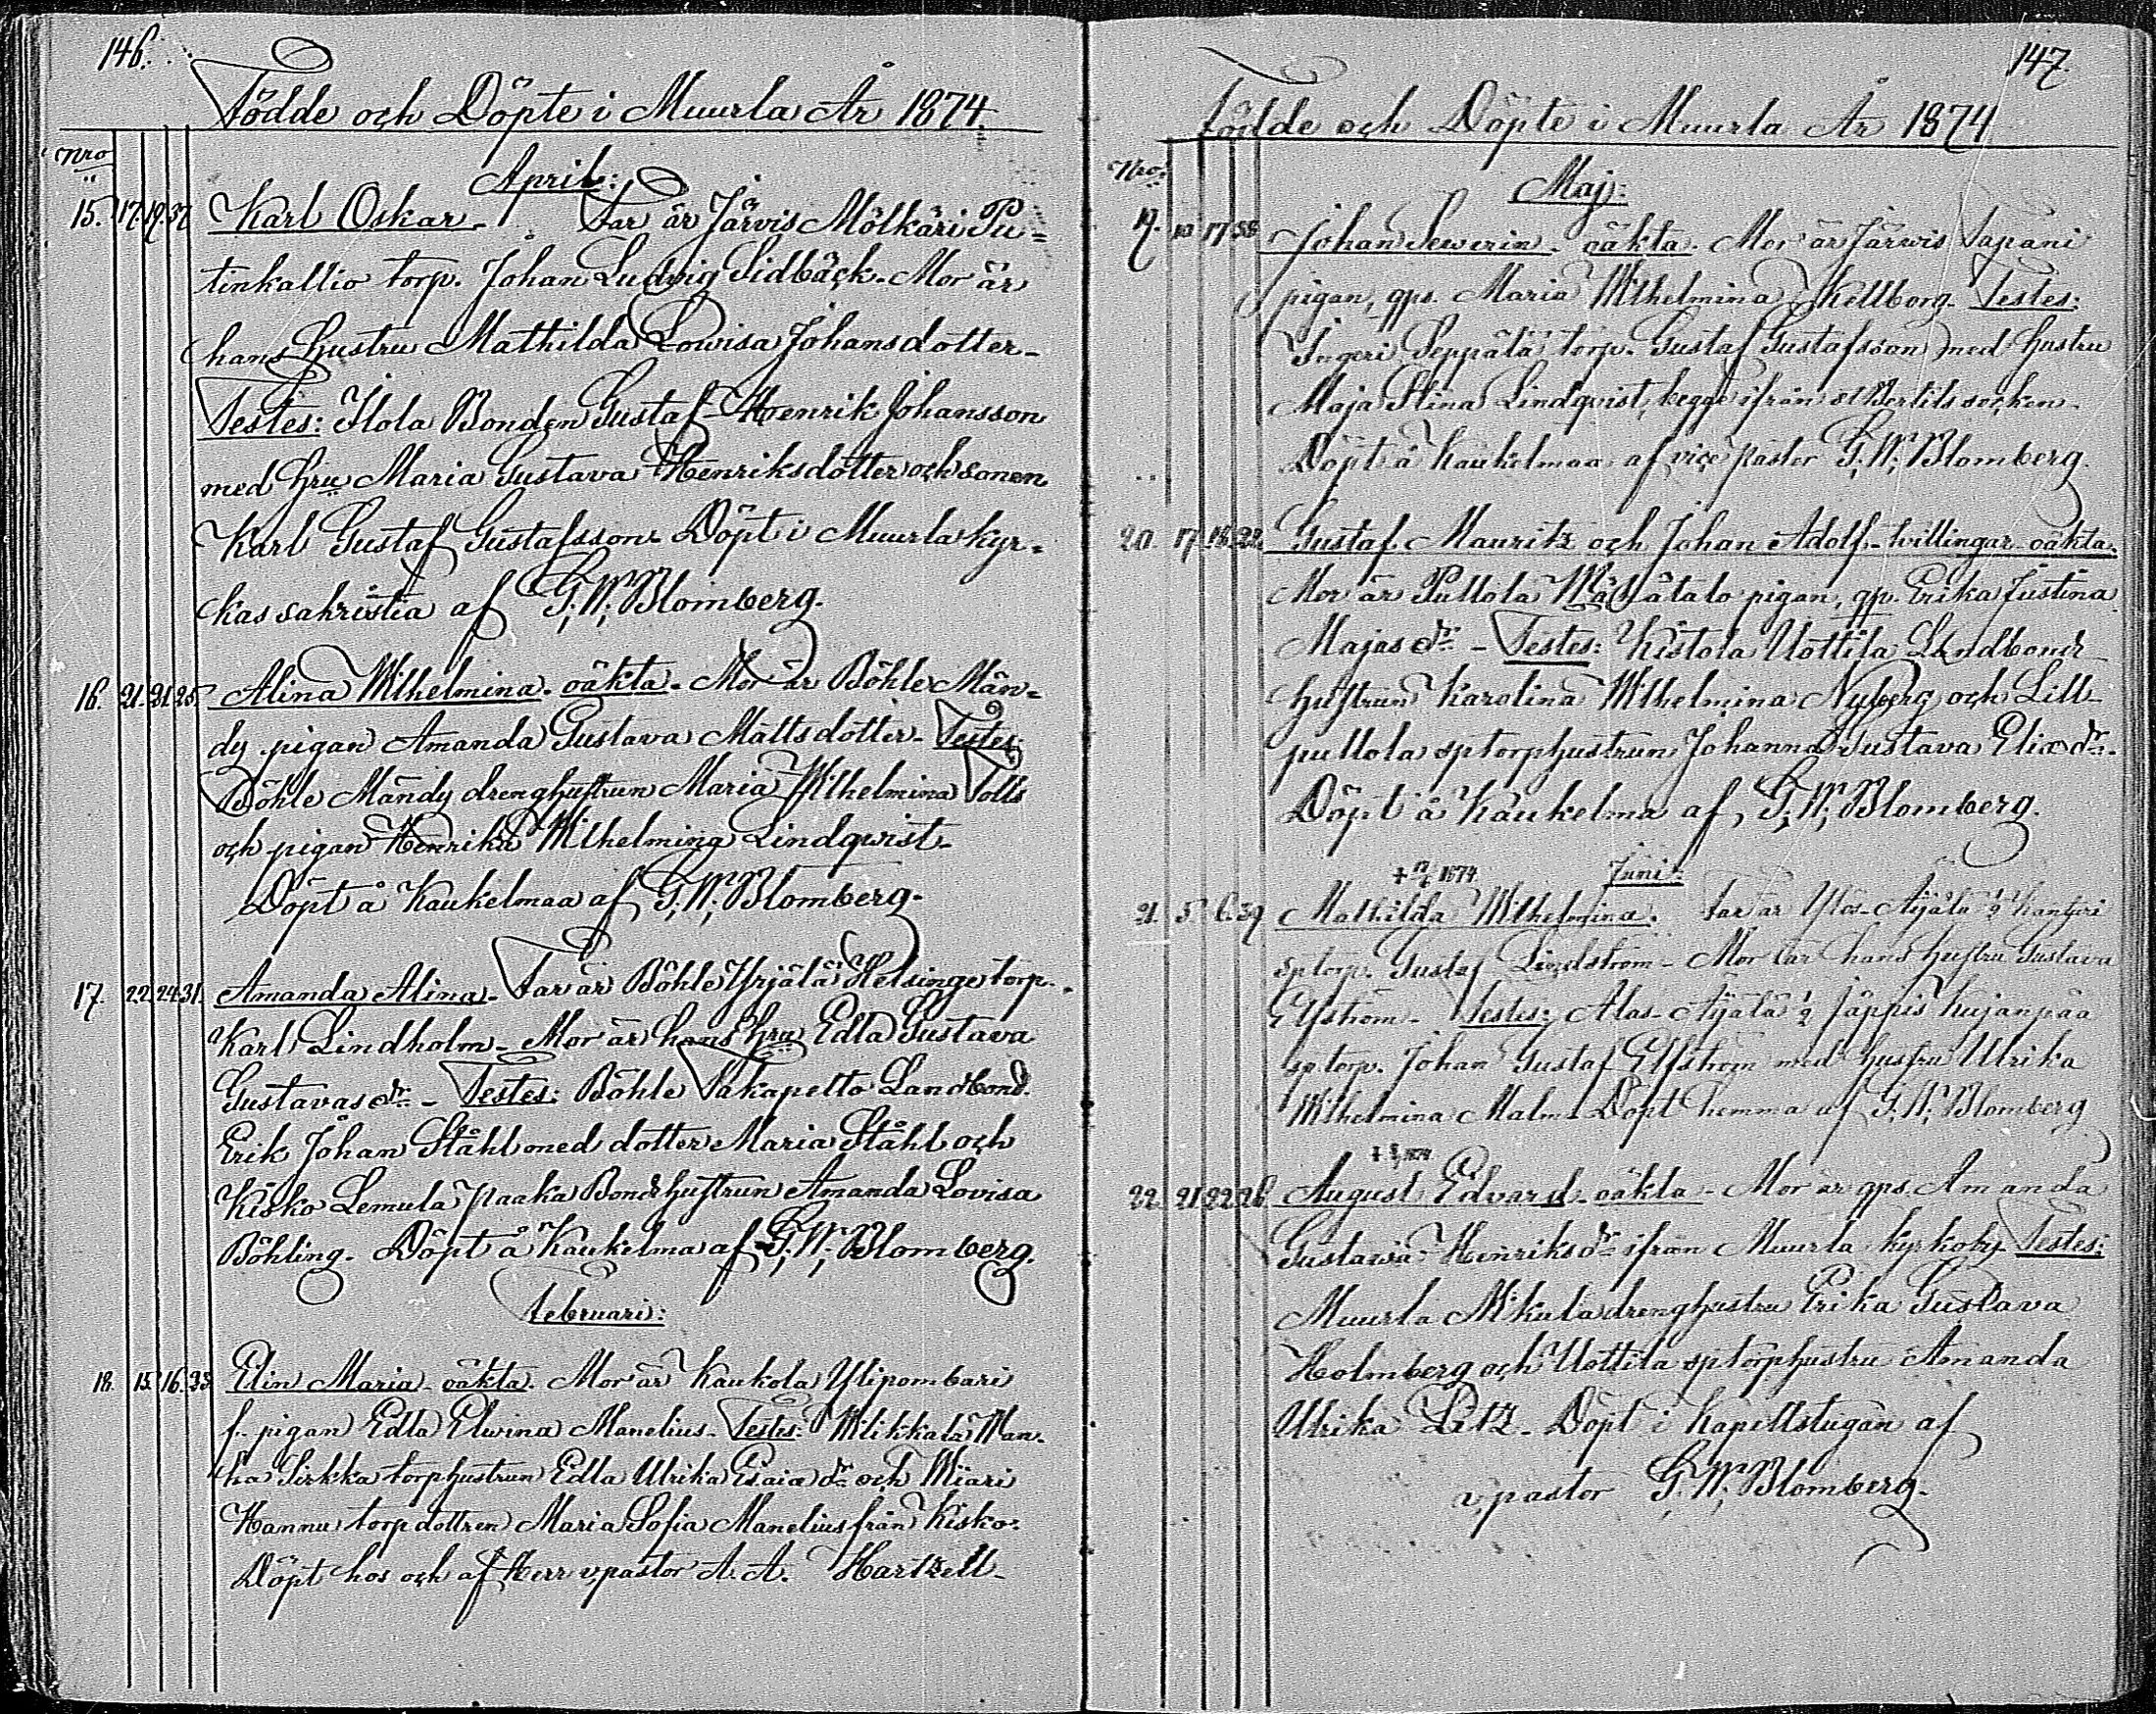 146.
Födde och Döpte i Muurla År 1874
Nro
April:
15. 17. 19. 37 Karl Oskar. Far är Järvis Mölkäri Pu=
tinkallio torp. Johan Ludvig Sidbäck. Mor är
hans Hustru Mathilda Lowisa Johansdotter-
Testes: Ilola Bonden Gustaf Henrik Johansson
med Hru Maria Gustava Henriksdotter och sonen
Karl Gustaf Gustafsson. Döpt i Muurla kyr=
kas sakristia af G; W; Blomberg.
16. 21. 21. 25. Alina Wilhelmina. oäkta. Mor är Böhle Män=
dy pigan Amanda Gustava Mattsdotter. Testes:
Böhle Mändy drenghustrun Maria Wilhelmina Tolls
och pigan Henrika Wilhelmina Lindqwist.
Döpt å Kaukelmaa af G; W; Blomberg.
17. 22. 24. 31. Amanda Alina. Far är Böhle Yrjälä Helsinge torp.
Karl Lindholm. Mor är hans Hru Edla Gustava
Gustavasdr. - Testes: Böhle Takapelto Landbond.
Erik Johan Ståhl med dotter Maria Ståhl och
Kisko Lemula Paaka Bondhustrun Amanda Lovisa
Böhling. Döpt å Kaukelma af G; W; Blomberg.
Februari:
18. 15. 16. 23. Elin Maria. oäkta. Mor är Kaukola Ylipombari
f. pigan Edla Elwina Manelius. Testes: Wilikkala Wan-
ha Sirkka torphustrun Edla Ulrika Esaiædr och Wiari
Hannu torpdottren Maria Sofia Manelius från Kisko.
Döpt hos och af Herr v, pastor A. A. Hartzell.
147.
Födde och Döpte i Muurla År 1874
Nro:
Maj:
19. 10 17 38 Johan Sewerin. oäkta. Mor är Järwis Tapani
pigan, qps. Maria Wilhelmina Kellborg. Testes:
Ingeri Seppälä torp. Gustaf Gustafsson med Hustru
Maja Stina Lindqvist, begge ifrån St Bertils socken.
Döpt å Kaukelmaa af vice pastor G; W; Blomberg.
20. 17. 18. 22. Gustaf Mauritz och Johan Adolf. tvillingar oäkta.
Mor är Pullola Wähätalo pigan, qp. Erika Justina
Majasdr. - Testes: Kistola Uottila Landbond
hustrun Karolina Wilhelmina Nyberg och Lill-
pullola sptorphustrun Johanna Gustava Eliædr.
Döpt å Kaukelma af, G; W; Blomberg.
Juni:
1874.
21. 5. 6. 39 Mathilda Wilhelmina. Far är Ylös-Äijälä ½ Kantori
sptorp. Gustaf Lindström - Mor är hans hustru Gustava
Elfström. Testes: Alas-Äijälä ½ Jäppis Kujanpää
sptorp. Johan Gustaf Elfström med hustru Ulrika
Wilhelmina Malm. Döpt hemma af G; W; Blomberg
1874
22. 21. 22. 26. August Edvard. oäkta - Mor är qps. Amanda
Gustawa Henriksdr ifrån Muurla kyrkoby. Testes:
Muurla Mikula drenghustru Erika Gustava
Holmberg och Uottila sptorphustru Amanda
Ulrika Litz. Döpt i Kapellstugan af
v, pastor G. W; Blomberg.